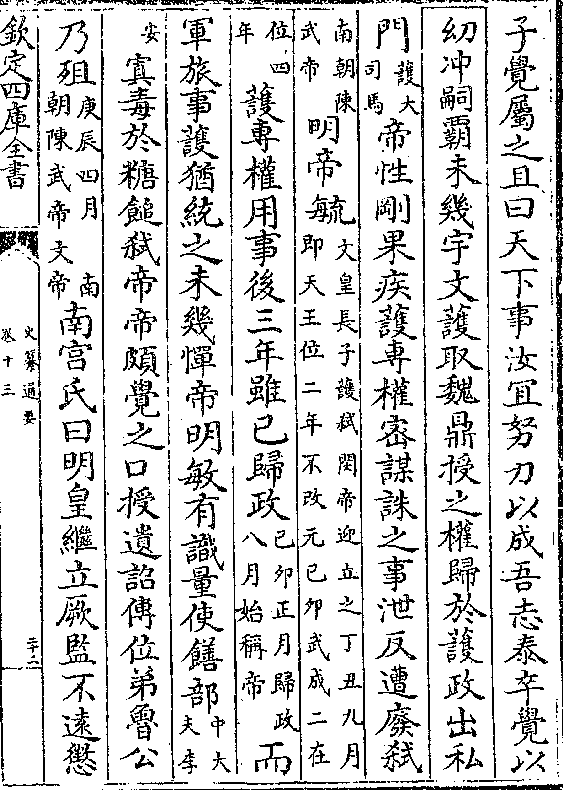 子覺屬之且曰天下事汝宜努力以成吾志泰卒覺以
幼冲嗣霸未幾宇文護取魏鼎授之權歸於護政出私
門護大司馬帝性剛果疾護專權密謀誅之事泄反遭廢弑
南朝陳武帝明帝毓文皇長子護弑閔帝迎立之丁丑九月即天王位二年不改元己卯武成二在
位四年護專權用事後三年雖已歸政己卯正月歸政八月始稱帝而
軍旅事護猶統之未幾憚帝明敏有識量使饍部中大夫李
安寘毒於糖䭔弑帝帝頗覺之口授遺詔傳位弟魯公
乃殂庚辰四月南朝陳武帝文帝南宫氏曰明皇繼立厥監不逺懲
欽定四庫全書
史纂通要
卷十三
二十二